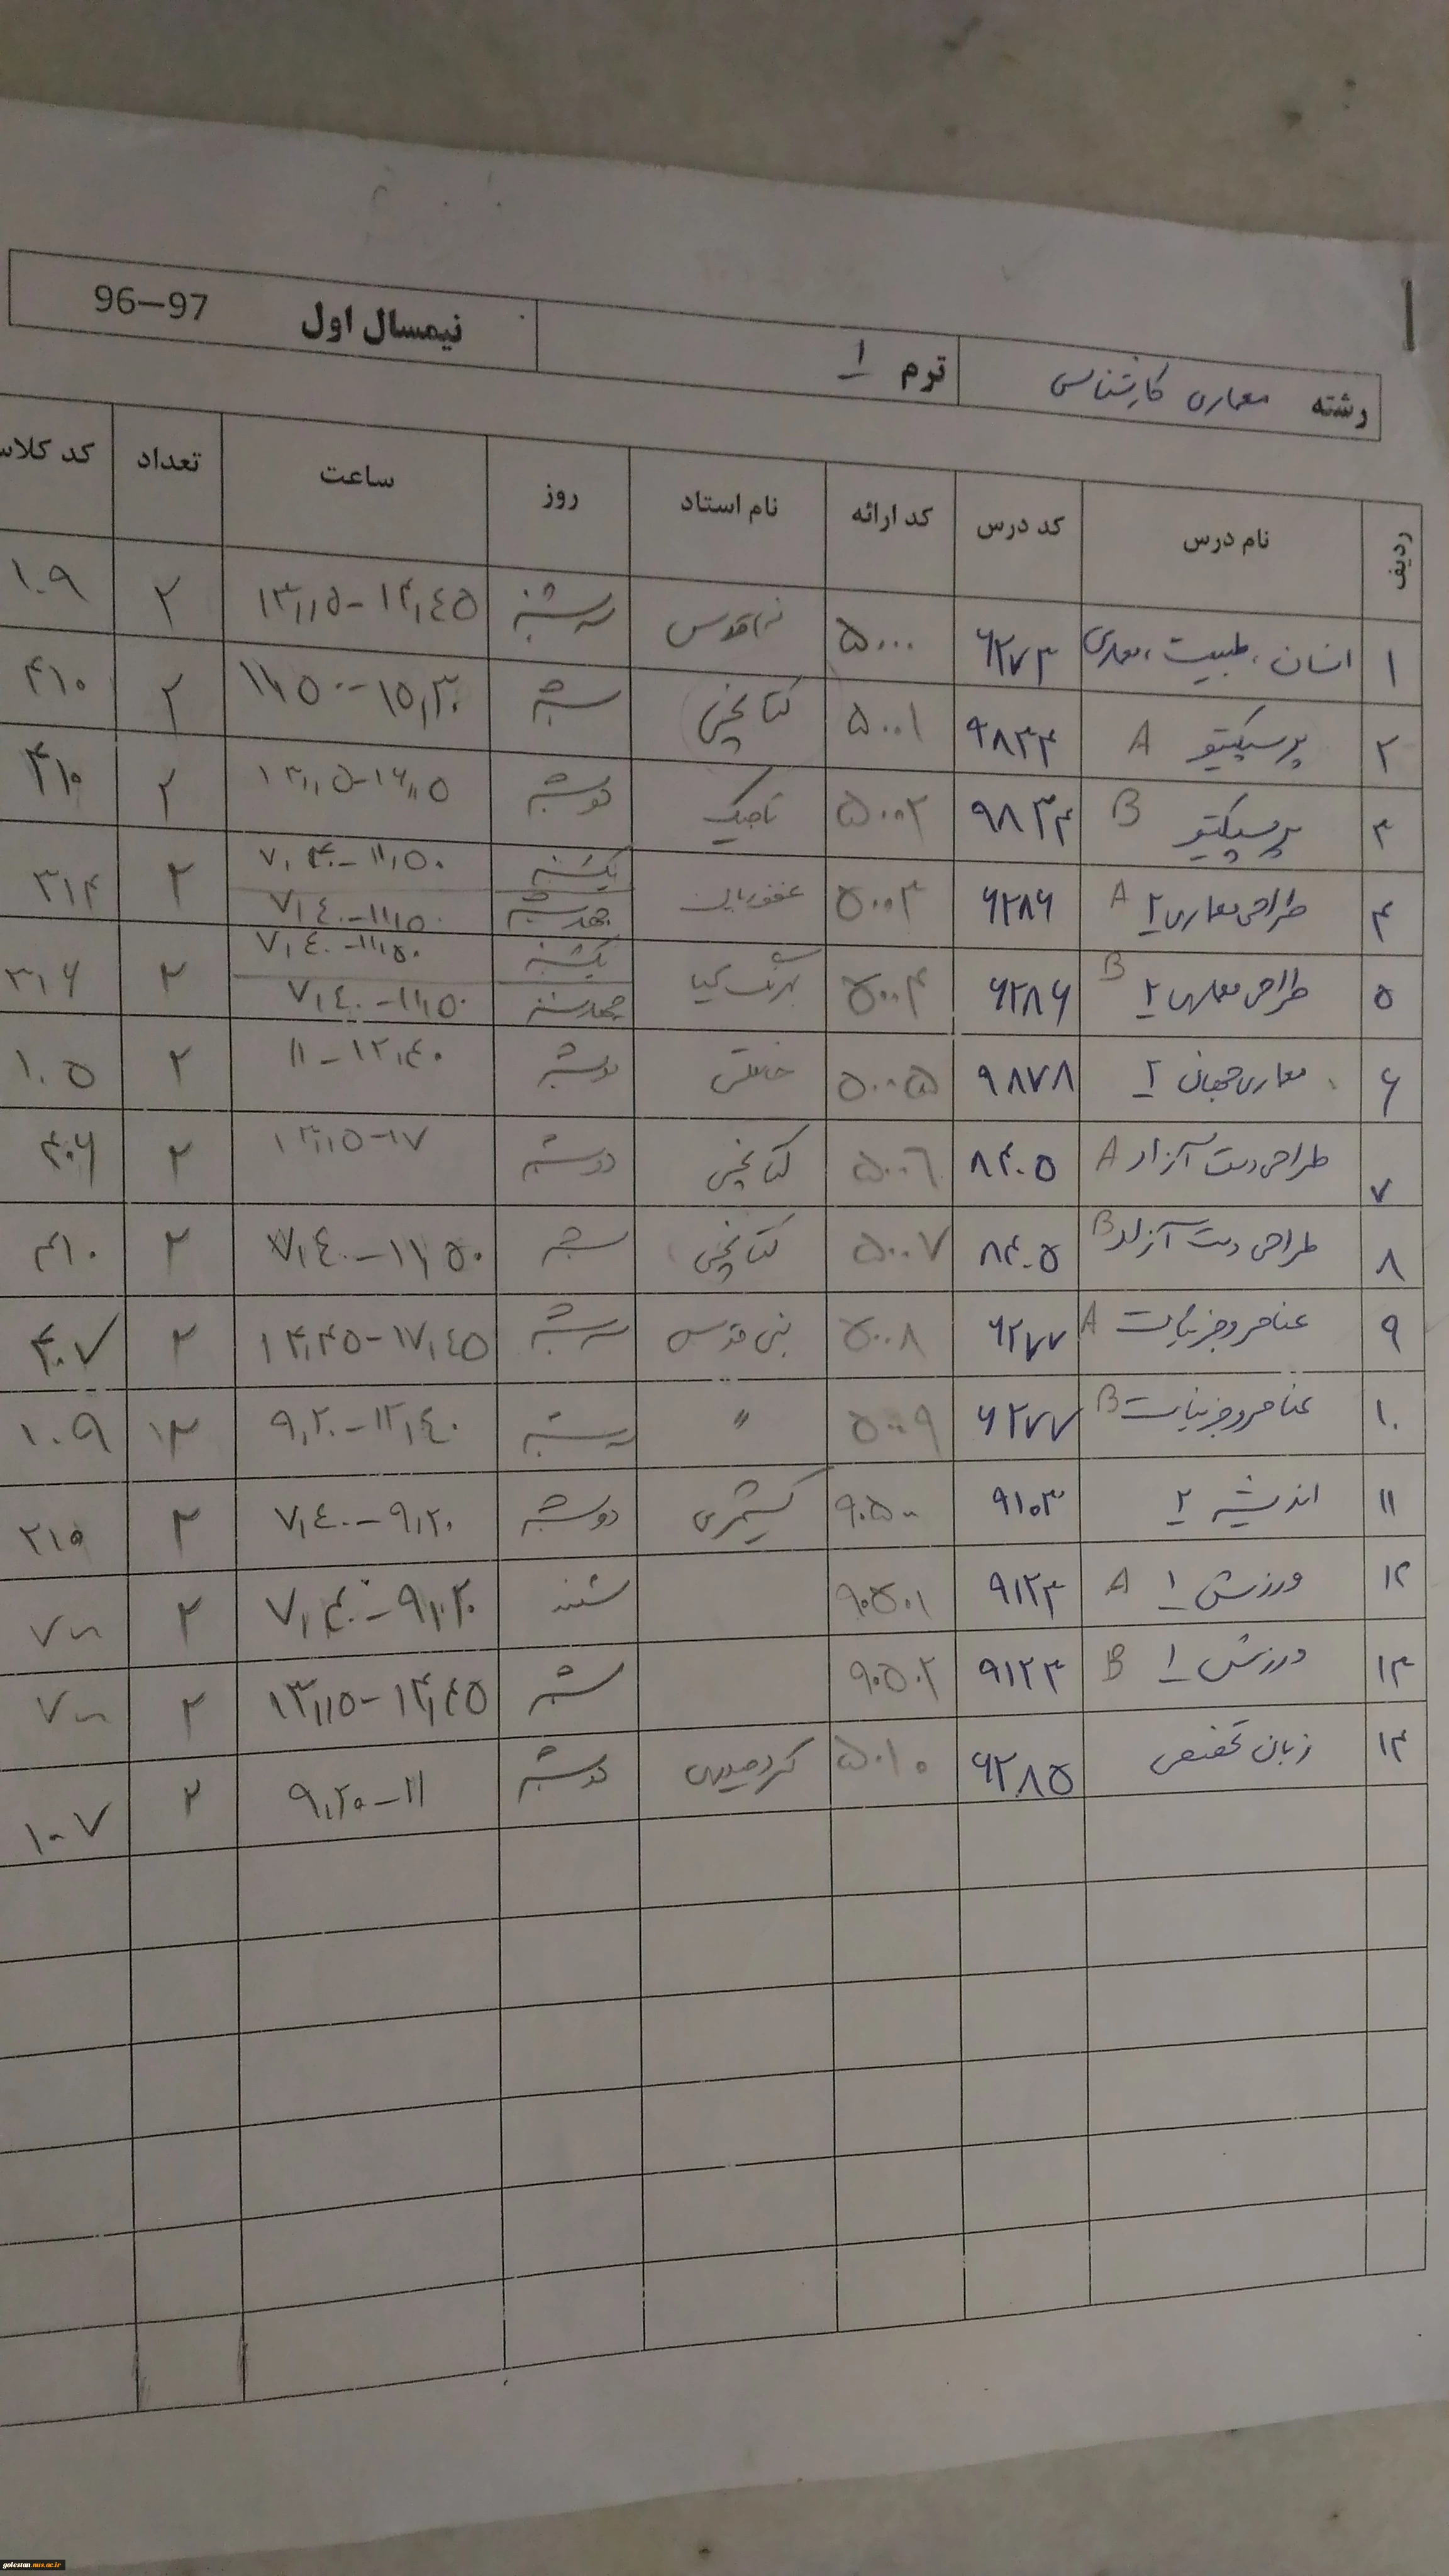 رشته معماری کارشناسی ترم ۱ نیمسال اول 96–97
ردیف نام درس کد درس کد ارائه نام استاد روز ساعت تعداد کد کلاس
۱ انسان، طبیعت، معماری ۶۲۷۳ ۵۰۰۰ سه شنبه ۱۳,۱۵-۱۴,۴۵ ۲ ۱۰۹
۲ پرسپکتیو A ۹۸۳۴ ۵۰۰۱ کتابچی شنبه ۲ ۴۱۰
۳ پرسپکتیو B ۹۸۳۴ ۵۰۰۲ تاجیک دوشنبه ۲ ۴۱۰
۴ طراحی معماری ۲ A ۶۲۸۶ ۵۰۰۳ یکشنبه ۷,۴۰-۱۱,۵۰ ۲ ۳۱۴
چهارشنبه ۷,۴۰-۱۱,۵۰
۵ طراحی معماری ۲ B ۶۲۸۶ ۵۰۰۴ یکشنبه ۷,۴۰-۱۱,۵۰ ۲ ۳۱۶
چهارشنبه ۷,۴۰-۱۱,۵۰
۶ معماری جهان ۲ ۹۸۷۸ ۵۰۰۵ دوشنبه ۱۱-۱۲,۴۰ ۲ ۱۰۵
۷ طراحی دست آزاد A ۸۴۰۵ ۵۰۰۶ کتابچی دوشنبه ۱۳,۱۵-۱۷ ۲ ۴۰۶
۸ طراحی دست آزاد B ۸۴۰۵ ۵۰۰۷ کتابچی شنبه ۷,۴۰-۱۱,۵۰ ۲ ۴۱۰
۹ عناصر و جزییات A ۶۲۷۷ ۵۰۰۸ بنی قدس سه شنبه ۱۴,۴۵-۱۷,۴۵ ۲ ۴۰۷
۱۰ عناصر و جزییات B ۶۲۷۷ ۵۰۰۹ " سه شنبه ۹,۲۰-۱۲,۴۰ ۱۰۹
۱۱ اندیشه ۲ ۹۱۰۳ ۹۰۵۰۰ دوشنبه ۷,۴۰-۹,۲۰ ۲ ۲۱۵
۱۲ ورزش ۱ A ۹۱۲۳ ۹۰۵۰۱ شنبه ۷,۴۰-۹,۲۰ ۲ ۷۰۰
۱۳ ورزش ۱ B ۹۱۲۳ ۹۰۵۰۲ شنبه ۱۳,۱۵-۱۴,۴۵ ۲ ۷۰۰
۱۴ زبان تخصصی ۶۲۸۵ ۵۰۱۰ دوشنبه ۹,۲۰-۱۱ ۲ ۱۰۷